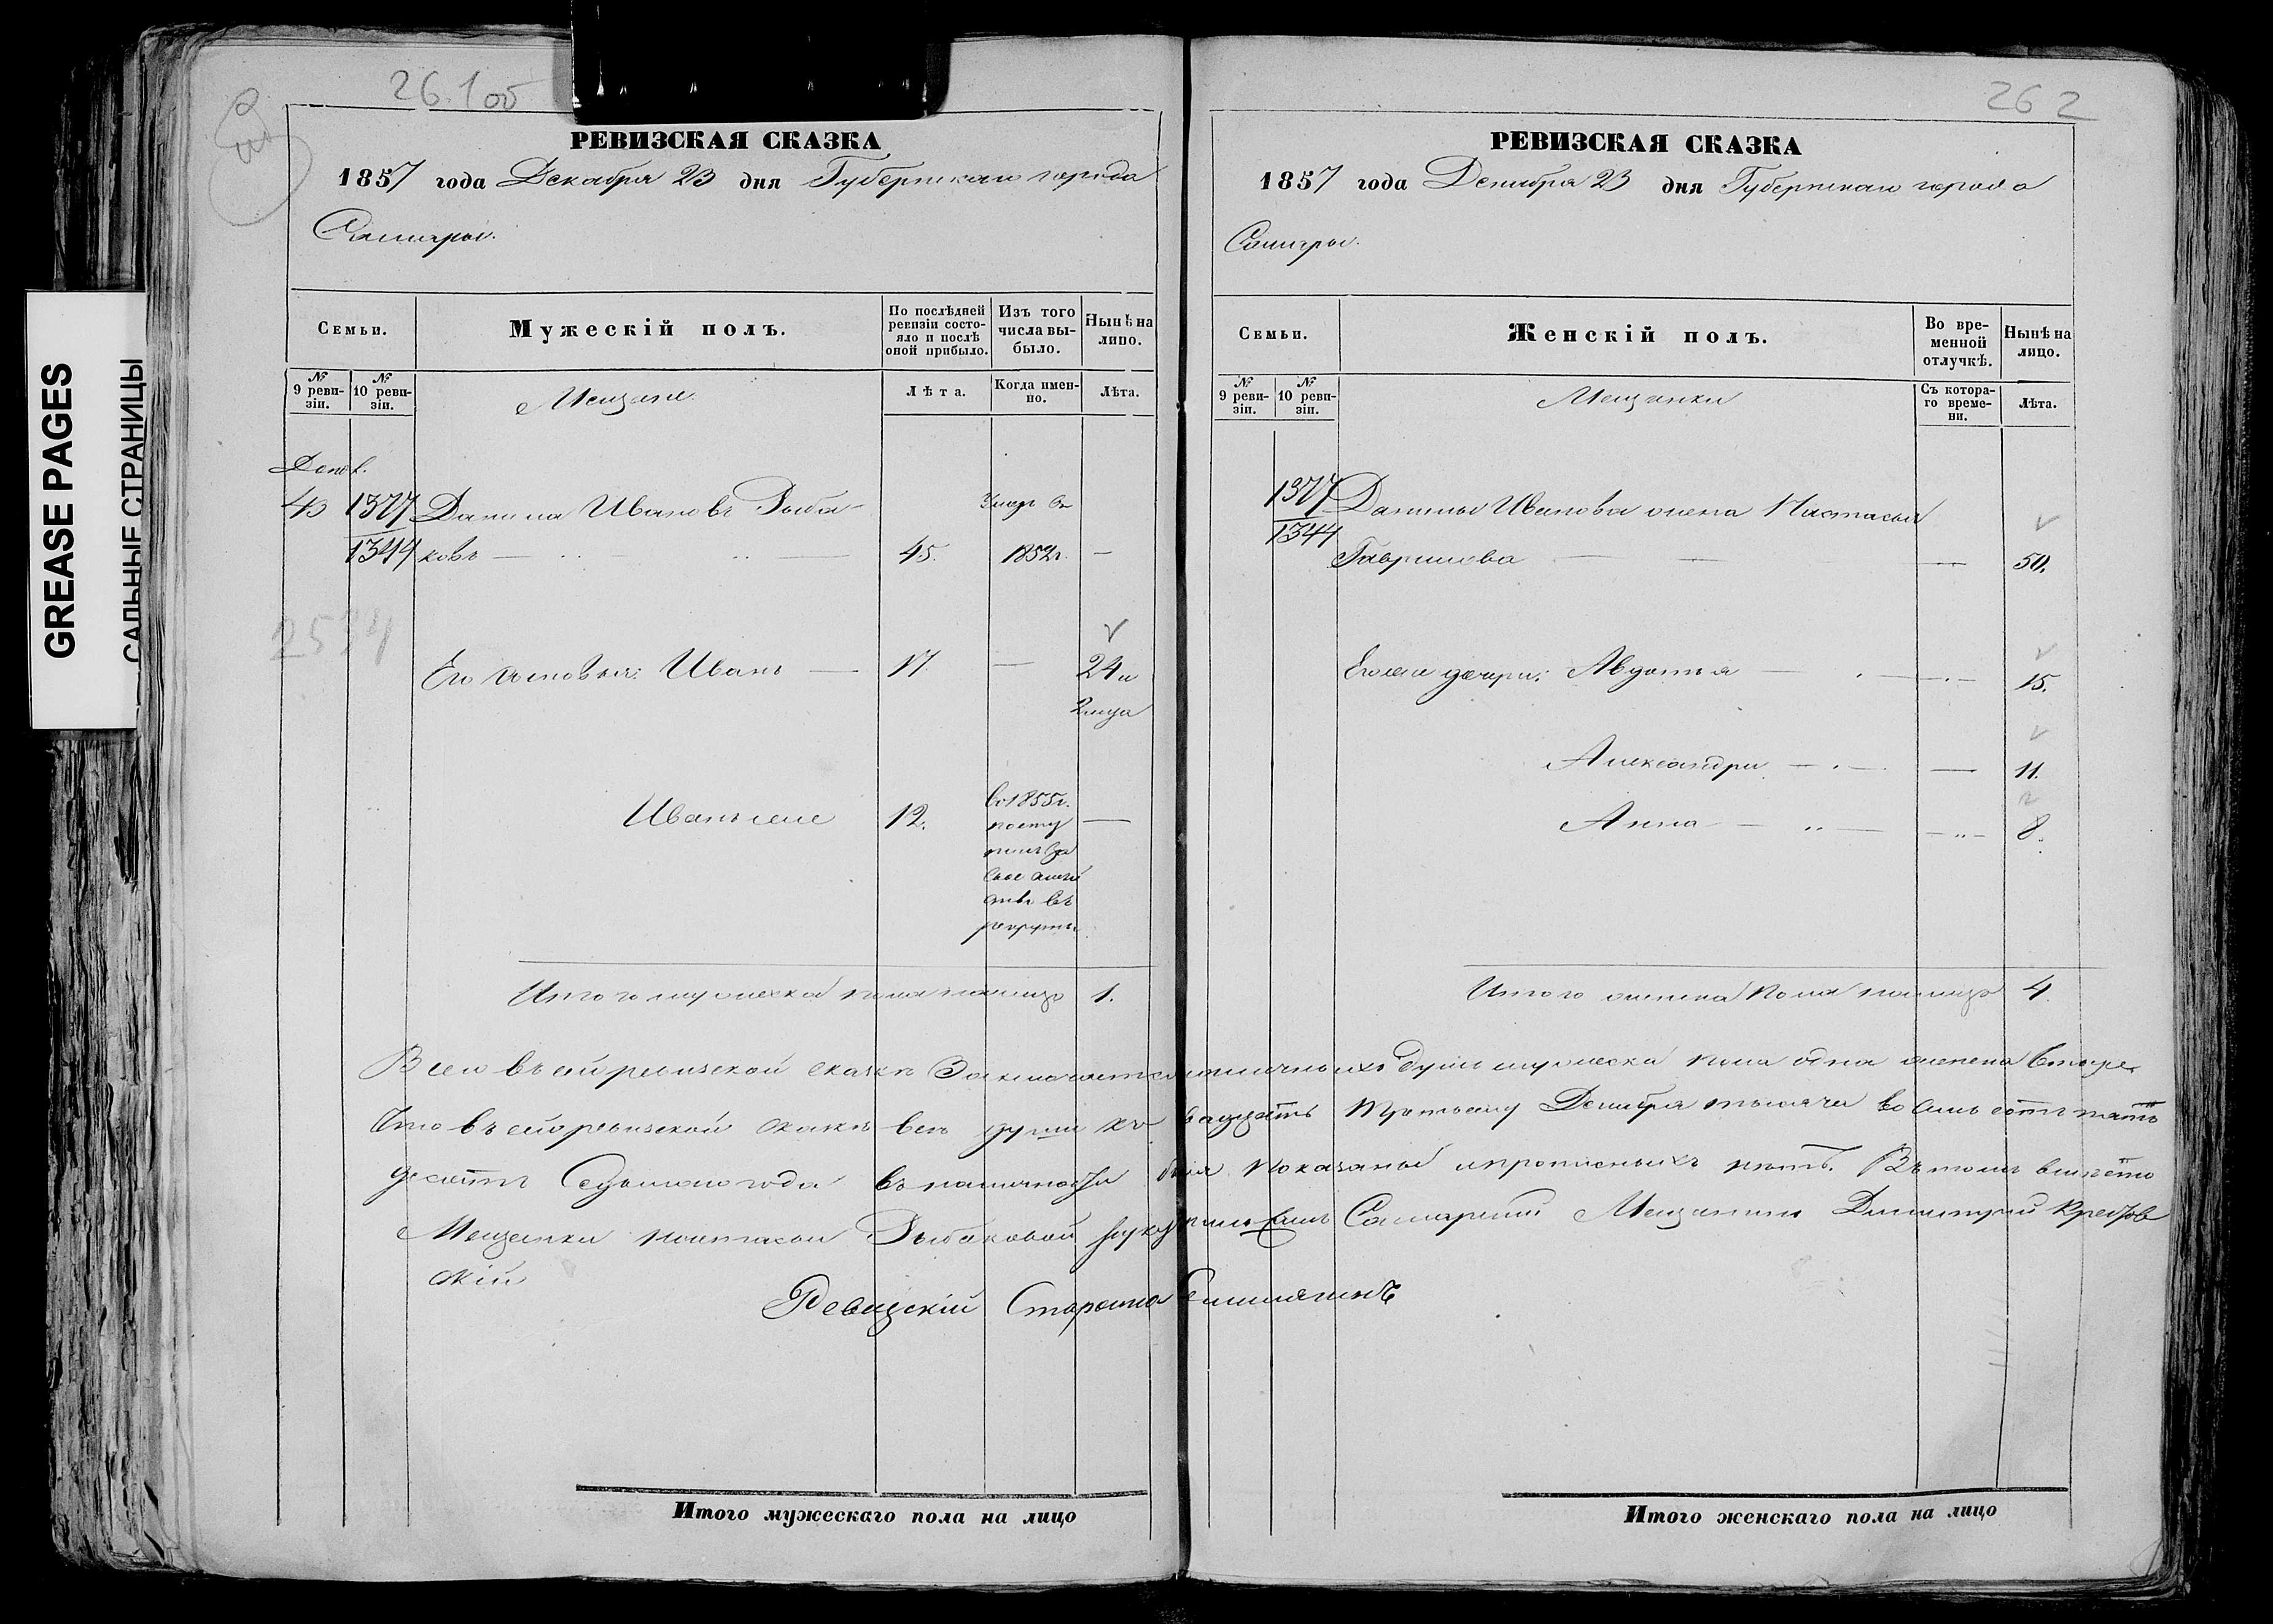 GREASE PAGES
САЛЬНЫЕ СТРАНИЦЫ
261об
РЕВИЗСКАЯ СКАЗКА
1857 года Декабря 23 дня Губернскаго города
Самары.
Семьи.
Мужескій полъ.
По послѣдней ревизіи состояло и послѣ оной прибыло.
Изъ того числа выбыло.
Нынѣ на лицо.
№ 9 ревизіи.
№ 10 ревизіи.
Мещане.
Лѣта.
Когда именно.
Лѣта.
Допол.
43 1377 Данила Ивановъ Рыба-
1344 ковъ 45. Умеръ въ 1852г. —
2534
Его сыновья: Иванъ — 17. — 24 и
2 мца
Иванъ же 12. въ 1855г. —
посту
пилъ за
свое семей
ство въ
рекруты.
Итого мужеска пола налицо 1.
262
РЕВИЗСКАЯ СКАЗКА
1857 года Декабря 23 дня Губернскаго города
Самары.
Семьи.
Женскій полъ.
Во временной отлучкѣ.
Нынѣ на лицо.
№ 9 ревизіи.
№ 10 ревизіи.
Мещанки
Съ котораго времени.
Лѣта.
1377 Данилы Иванова жена Настасья
1344 Гаврилова — 50.
Его же дочери: Авдотья — 15.
Александра — 11.
Анна — 8.
Итого женска пола налицо 4.
Всего въ сей ревизской сказкѣ Заключается наличныхъ душъ мужеска пола одна женска четыре.
Что въ сей ревизской сказкѣ все души къ двадцать третьему Декабря тысяча восемь сотъ пять
десятъ Седьмого года въ наличности бы показаны и прописныхъ нѣтъ. Въ томъ вмѣсто
Мещанки Настасьи Рыбаковой руку приложилъ Самарскій Мещанинъ Дмитрий
скій
Ревизскій Староста
Итого мужескаго пола на лицо
Итого женскаго пола на лицо